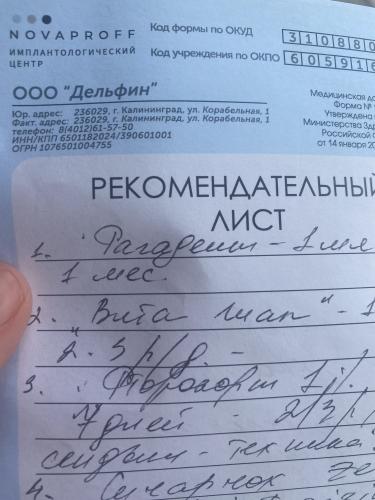 NOVAPROFF
ИМПЛАНТОЛОГИЧЕСКИЙ
ЦЕНТР
Код формы по ОКУД 310880
Код учреждения по ОКПО 60591
ООО "Дельфин"
Юр. адрес: 236029, г. Калининград, ул. Корабельная, 1
Факт. адрес: 236029, г. Калининград, ул. Корабельная, 1
телефон: 8(4012)61-57-50
ИНН/КПП 6501182024/390601001
ОГРН 1076501004755
Медицинская до
Форма №
Утверждена
Министерства Здр
Российской
от 14 января 20
РЕКОМЕНДАТЕЛЬНЫЙ
ЛИСТ
1. - 1 мл
1 мес.
2. "Вита - 1
2. 3 р/д. -
3. 1
7 дней - 2/3 р/
4.